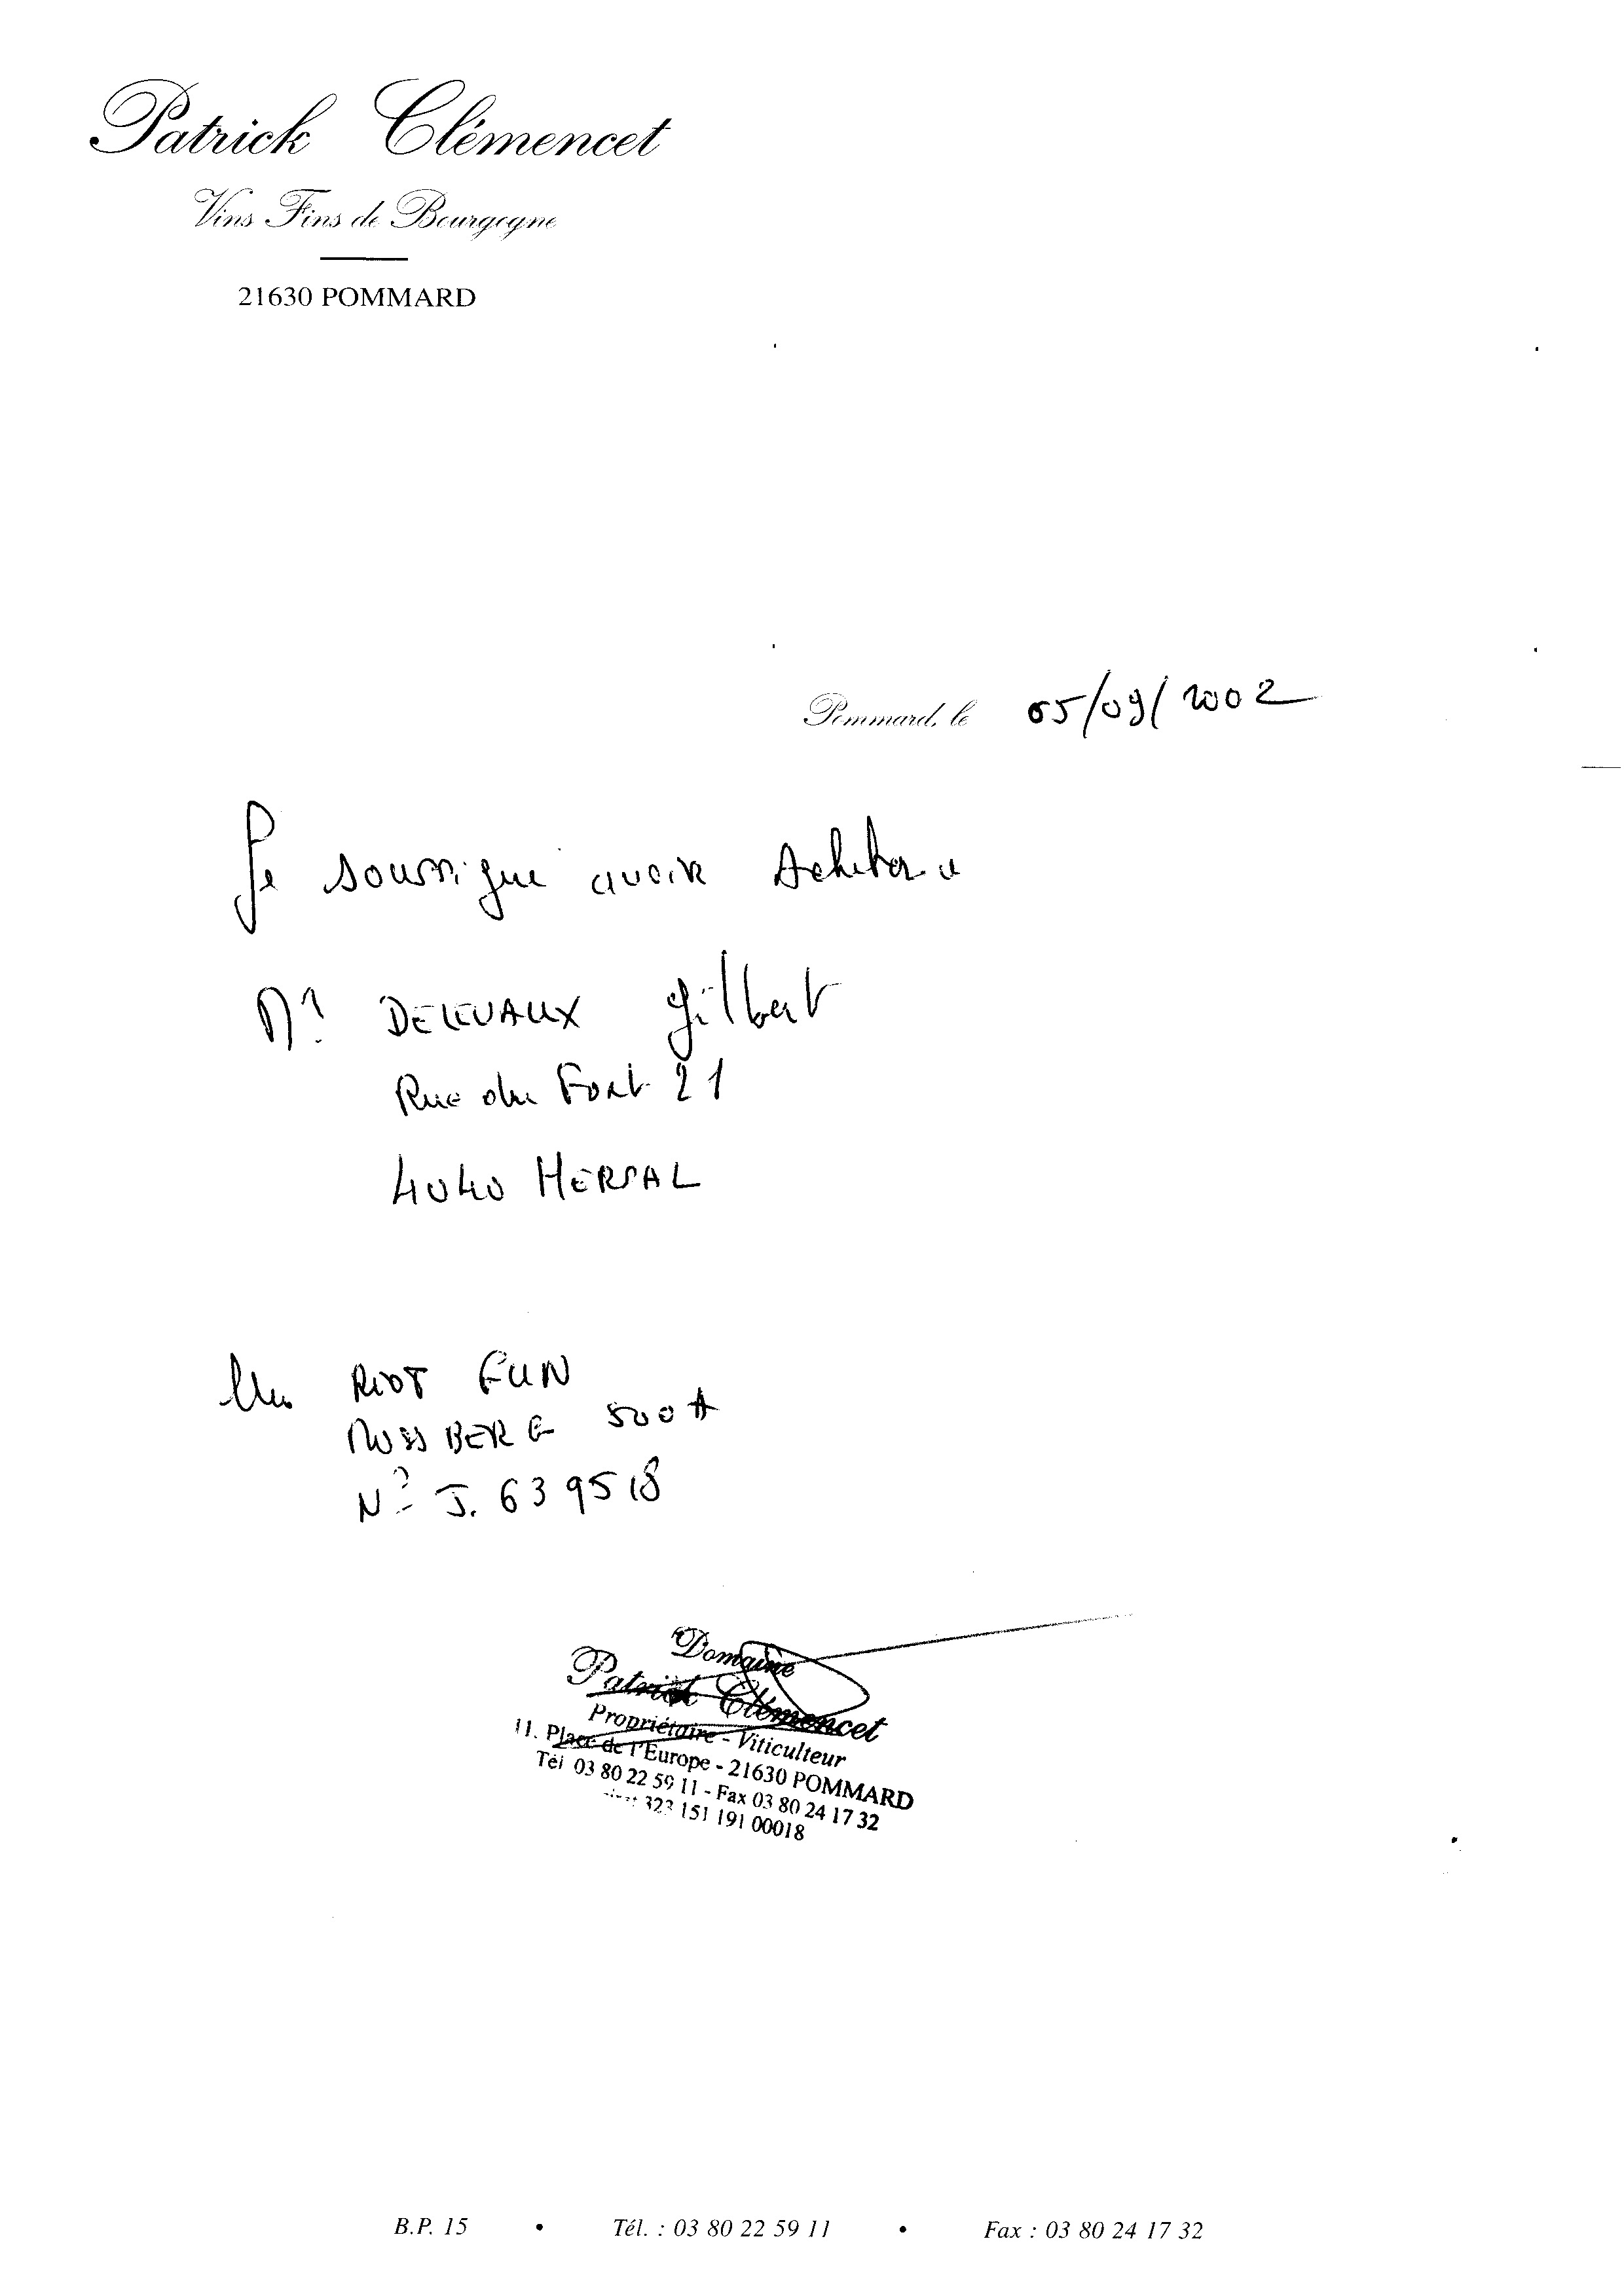 Patrick Clémencet
Vins Fins de Bourgogne
21630 POMMARD
Pommard, le 05/09/2002
Je soussigné avoir Acheter a
Mr DELEVAUX Gilbert
Rue du Fort 21
4040 HERSAL
Un RIOT GUN
MOSSBERG 500A
N° J. 639518
Domaine
Patrick Clémencet
Propriétaire - Viticulteur
11. Place de l'Europe - 21630 POMMARD
Tél 03 80 22 59 11 - Fax 03 80 24 17 32
323 151 191 00018
B.P. 15 • Tél. : 03 80 22 59 11 • Fax : 03 80 24 17 32